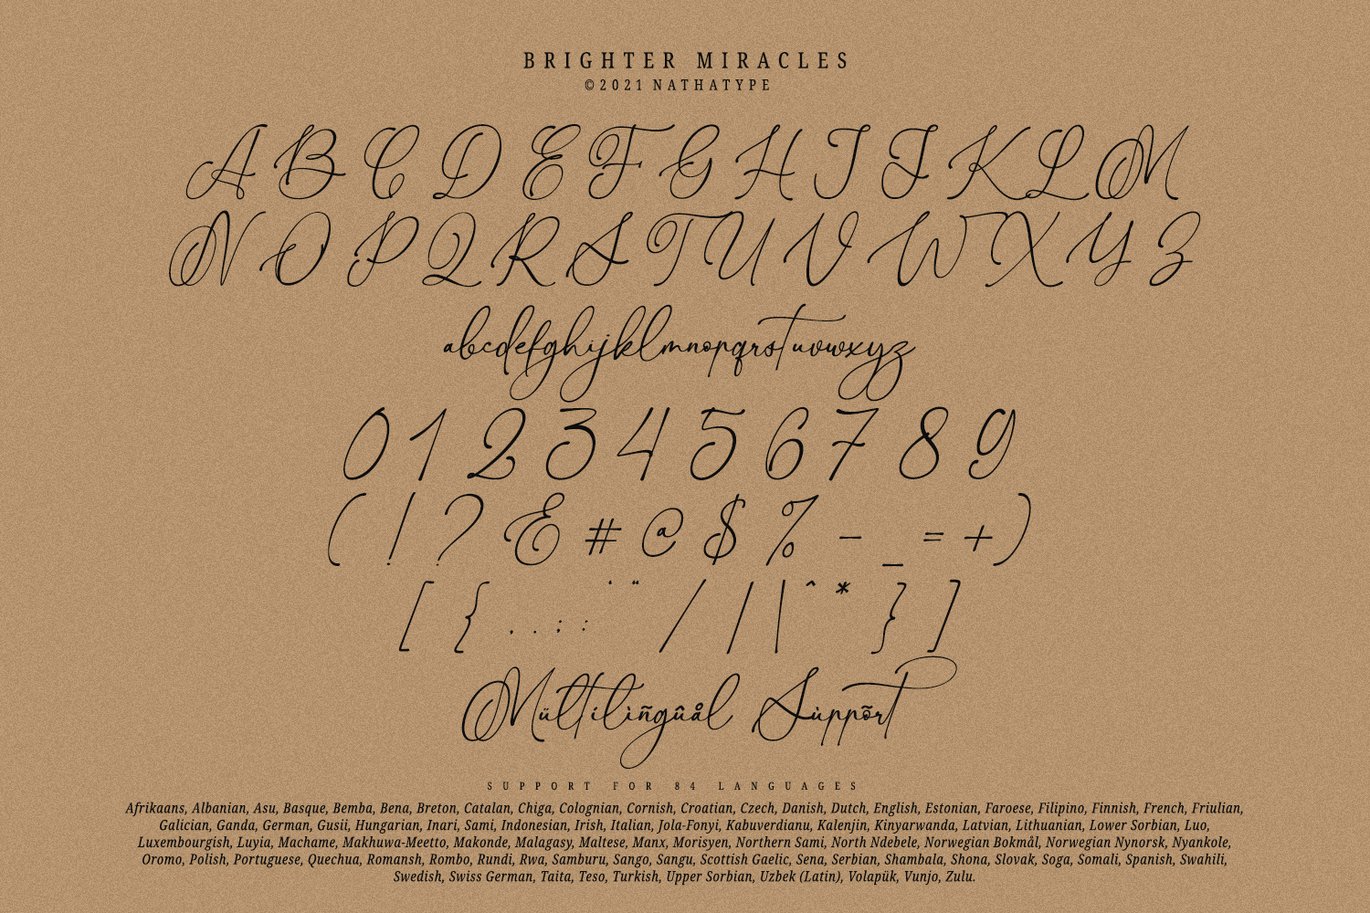 BRIGHTER MIRACLES
©2021 NATHATYPE
A B C D E F G H I J K L M
N O P Q R S T U V W X Y Z
abcdefghijklmnopqrstuvwxyz
0 1 2 3 4 5 6 7 8 9
( ! ? & # @ $ % - _ = + )
[ { , . ; : ' " / | \ ^ * } ]
Mültilìñgûål Sùppõrt
SUPPORT FOR 84 LANGUAGES
Afrikaans, Albanian, Asu, Basque, Bemba, Bena, Breton, Catalan, Chiga, Colognian, Cornish, Croatian, Czech, Danish, Dutch, English, Estonian, Faroese, Filipino, Finnish, French, Friulian,
Galician, Ganda, German, Gusii, Hungarian, Inari, Sami, Indonesian, Irish, Italian, Jola-Fonyi, Kabuverdianu, Kalenjin, Kinyarwanda, Latvian, Lithuanian, Lower Sorbian, Luo,
Luxembourgish, Luyia, Machame, Makhuwa-Meetto, Makonde, Malagasy, Maltese, Manx, Morisyen, Northern Sami, North Ndebele, Norwegian Bokmål, Norwegian Nynorsk, Nyankole,
Oromo, Polish, Portuguese, Quechua, Romansh, Rombo, Rundi, Rwa, Samburu, Sango, Sangu, Scottish Gaelic, Sena, Serbian, Shambala, Shona, Slovak, Soga, Somali, Spanish, Swahili,
Swedish, Swiss German, Taita, Teso, Turkish, Upper Sorbian, Uzbek (Latin), Volapük, Vunjo, Zulu.